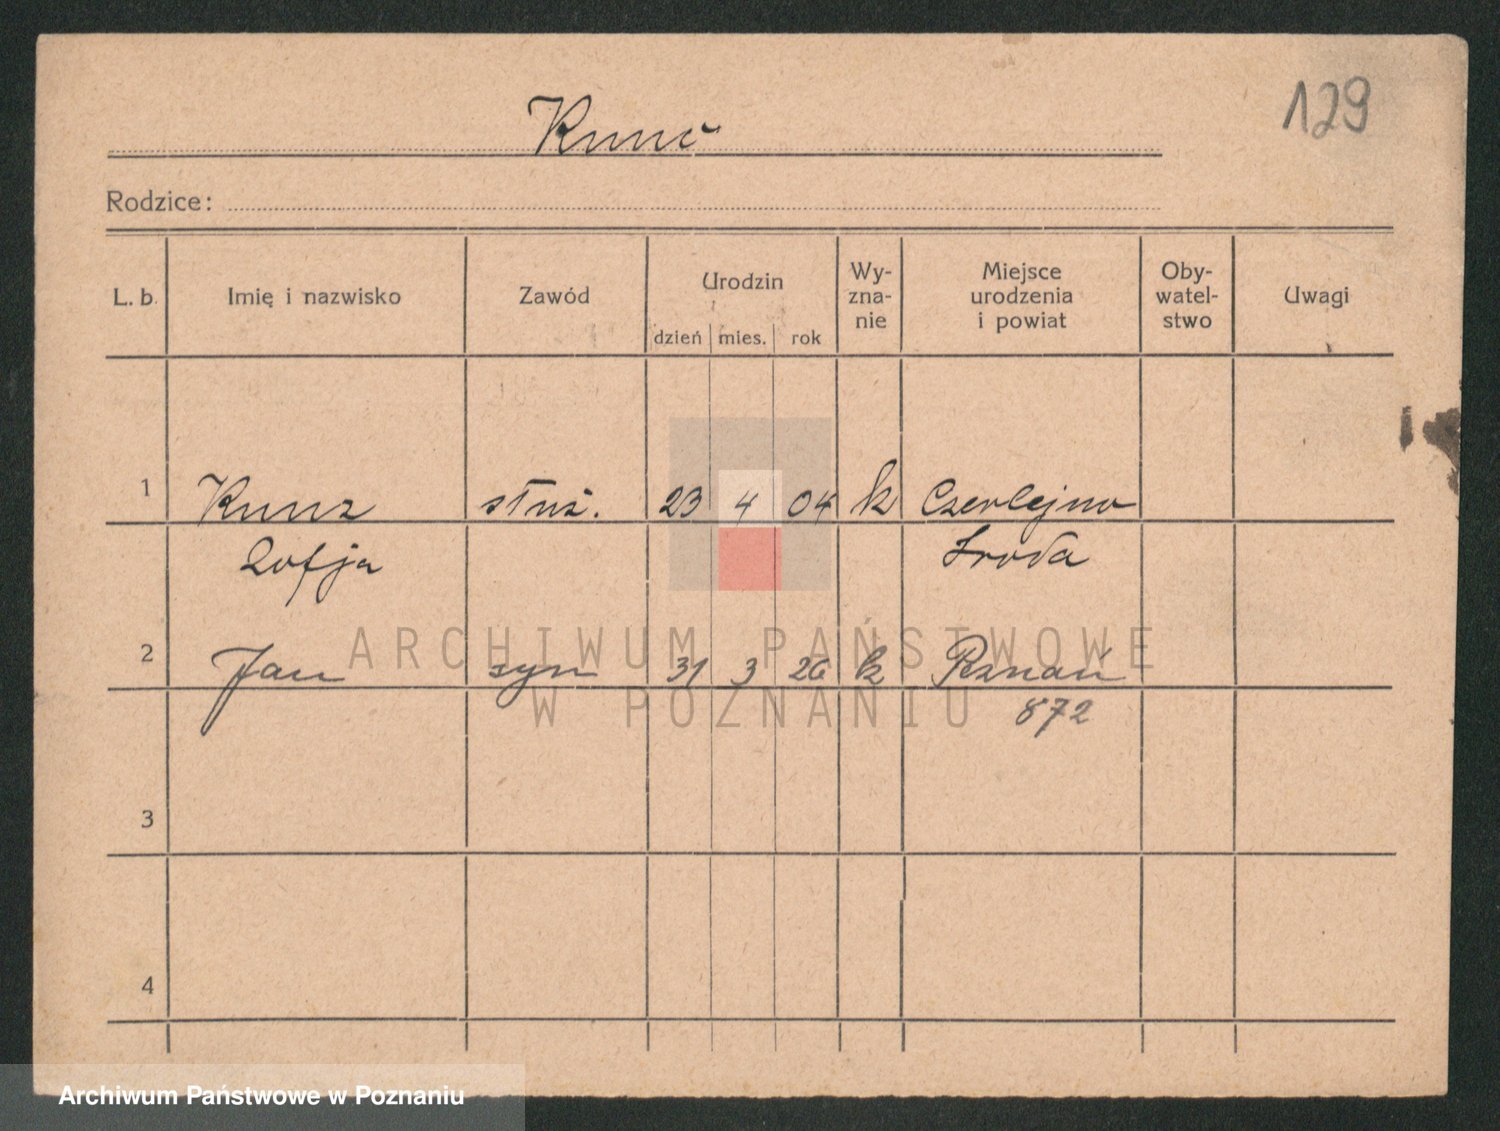 129
Kunc
Rodzice:
L. b. Imię i nazwisko Zawód Urodzin dzień mies. rok Wy-zna-nie Miejsce urodzenia i powiat Oby-watel-stwo Uwagi
1 Kunz służ. 23 4 04 k Czerlejno
Zofja Środa
2 Jan syn 31 3 26 k Poznań
872
3
4
ARCHIWUM PAŃSTWOWE
W POZNANIU
Archiwum Państwowe w Poznaniu